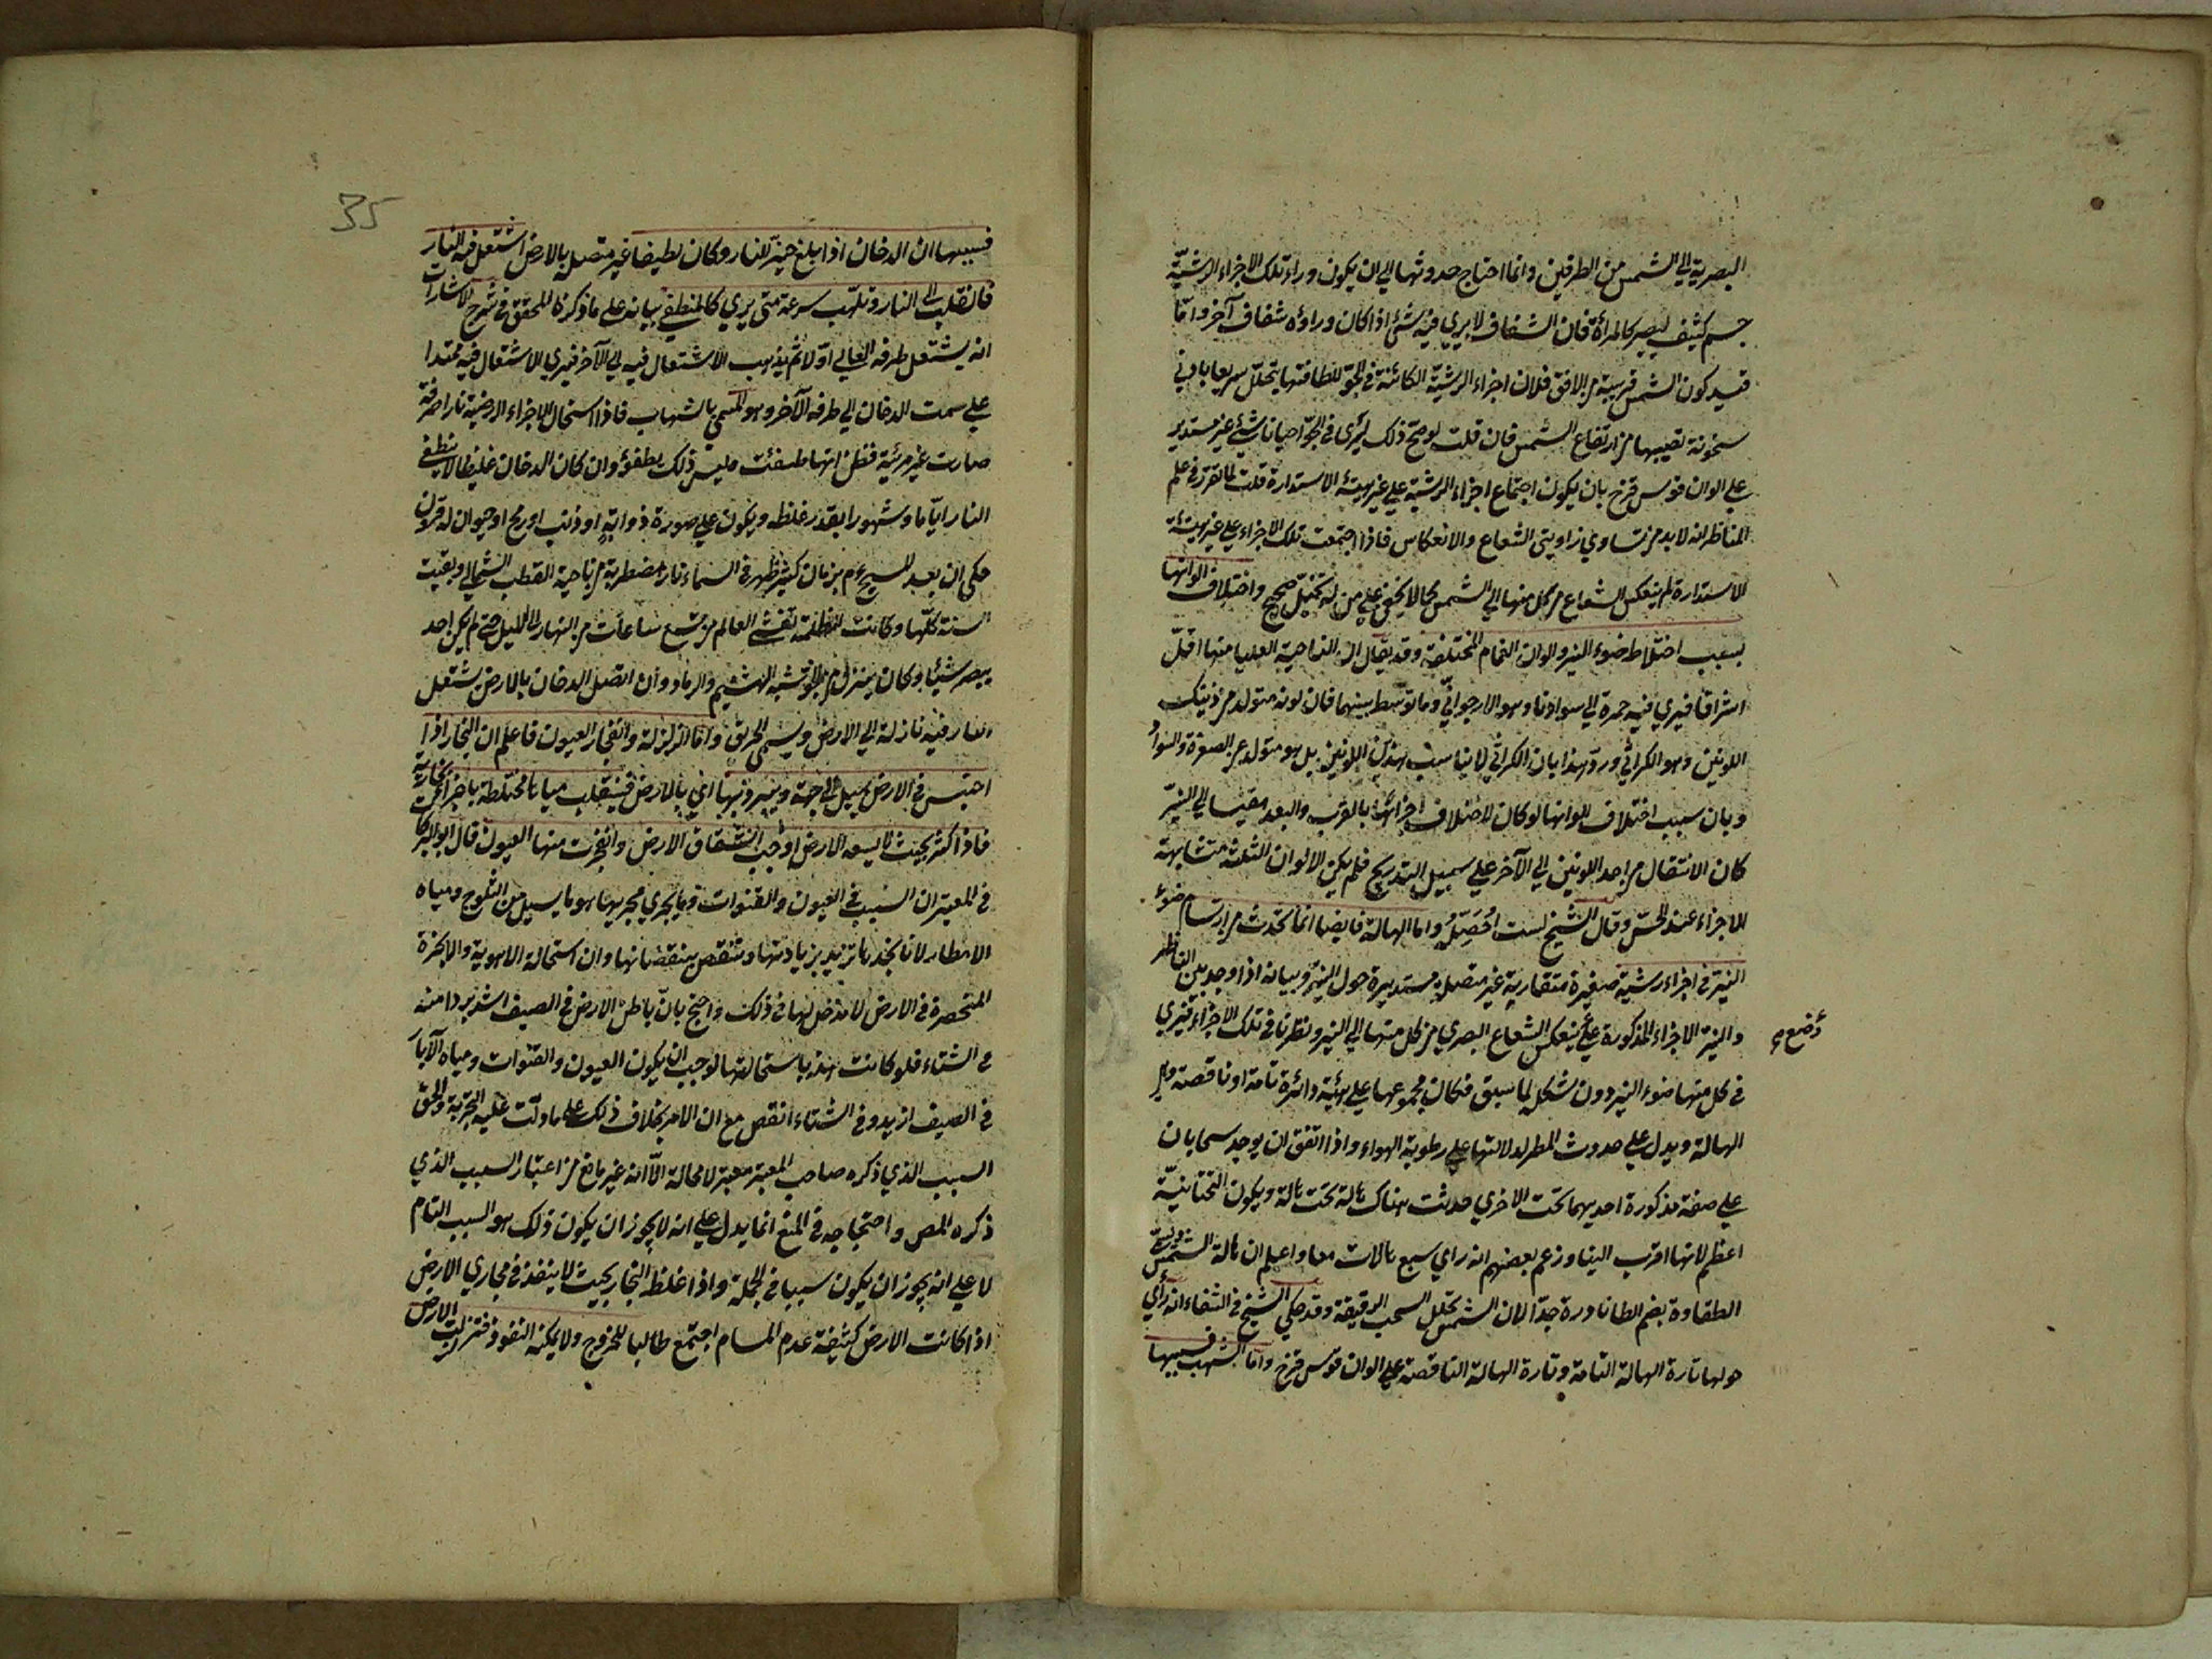 البصرية الي الشمس من الطرفين وانما احتاج حدوثها الي ان يكون وراء تلك الاجزاء الرشيّة
جسم كثيف ليصير كالمرأة فان الشفاف لا يري فيه شئ اذا كان وراؤه شفاف آخر وامّا
قيد كون الشمس قريبة من الافق فلان اجزاء الرشيّة الكائنة في الجوّ للطافتها يتحلّل سريعا بادني
سخونة تصيبها من ارتفاع الشمس فان قلت لو صحّ ذلك لم يُرى في الجوّ احيانا شئ غير مستدير
علي الوان قوس قزح بان يكون اجتماع اجزاء الرشية علي غير هيئة الاستدارة قلت لما تقرر في علم
المناظر انه لا بد من تساوي زاويتى الشعاع والانعكاس فاذا اجتمعت تلك الاجزاء علي غير هيئة
الاستدارة لم ينعكس الشعاع من كل منها الي الشمس كما لا يخفي علي من له تخيّل صحيح واختلاف الوانها
بسبب اختلاط ضوء النير والوان الغمام المختلفة وقد يقال ان الناحية العليا منها اقلّ
اشراقا فيري فيه حمرة الي سواد ما وهو الارجوانيّ وما توسط بينهما فان لونه متولد من ذينك
اللونين وهو الكراثي وردّ هذا بان الكراثي لا يناسب هذين اللونين بل هو متولد عن الصفرة والسواد
وبان سبب اختلاف الوانها لو كان لاختلاف اجزائها بالقرب والبعد مقيسا الي النيّر
كان الانتقال من احد اللونين الي الآخر علي سبيل التدريج فلم يكن الالوان الثلثة متشابهة
الاجزاء عند الحسّ وقال الشيخ لست احُصّله واما الهالة فايضا انما تحدث من ارتسام ضوء
النيّر في اجزاء رشية صغيرة متقاربة غير متصلة مستديرة حول النيّر وبيانه اذا وجد بين الناظر
والنيّر الاجزاء المذكورة علي ينعكس الشعاع البصري من كل منها الي النير ونظرنا في تلك الاجزاء فيري
وضع م
في كل منها ضوء النير دون شكله لما سبق فكان مجموعها علي هيئة دائرة تامة او ناقصة وهي
الهالة ويدل علي حدوث المطر لدلالتها علي رطوبة الهواء واذا اتفق ان يوجد سحابان
علي صفة مذكورة احديهما تحت الاخري حدثت هناك هالة تحت هالة ويكون التحتانيّة
اعظم لانها اقرب الينا وزعم بعضهم انه راي سبع هالات معا واعلم ان هالة الشمس وتسمي
الطفاوة بضم الطا نادرة جدّا لان الشمس تحلل السحب الرقيقة وقد حكي الشيخ في الشفاء انه رأي
حولها تارة الهالة التامة وتارة الهالة الناقصة علي الوان قوس قزح وامّا الشهب فسببها
35
فسببها ان الدخان اذا بلغ حيّز النار وكان لطيفا غير متصل بالارض اشتعل فيه النار
فانقلب الى النار وتلهّب بسرعة حتى يري كالمنطفي بيانه علي ما ذكره المحقق في شرح الاشارات
انه يشتعل طرفه العالي اوّلا ثم يذهب الاشتعال فيه الي الآخر فيري الاشتعال فيه ممتدا
علي سمت الدخان الي طرفه الآخر وهو المسمّي بالشهاب فاذا استحال الاجزاء الارضية نارا صرفة
صارت غير مرئية فظن انها طفئت وليس ذلك بطفوء وان كان الدخان غليظا لا ينطفي
النار ايّاما وشهورا بقدر غلظه ويكون علي صورة ذوابةٍ او ذنب او رمح او حيوان له قرون
حكي ان بعد المسيح ءم بزمان كثير ظهر في السماء نار مضطربة من ناحية القطب الشمالي وبقيت
السنة كلّها وكانت الظلمة تغشي العالم من تسع ساعات من النهار الى الليل حتى لم يكن احد
يبصر شيئا وكان ينزل من الجو شبه الهشيم والرماد وان اتصل الدخان بالارض يشتعل
النار فيه نازلة الي الارض ويسمي الحريق وامّا الزلزلة وانفجار العيون فاعلم ان البخار اذا
احتبس في الارض يميل الى جهة ويتبرد بها اي بالارض فينقلب مياها مختلطة باجزاء بخارية
فاذا كثر بحيث لا يسعه الارض اوجب انشقاق الارض وانفجرت منها العيون قال ابو البركات
في المعتبر ان السبب في العيون والقنوات وما يجري مجريها هو ما يسيل من الثلوج ومياه
الامطار لانا نجدها تزيد بزيادتها وتنقص بنقصانها وان استحالة الاهوية والابخرة
المنحصرة في الارض لا مدخل لها في ذلك واحتج بانّ باطن الارض في الصيف اشد بردا منه
في الشتاء فلو كانت هذه باستحالتها لوجب ان يكون العيون والقنوات ومياه الآبار
في الصيف ازيد وفي الشتاء انقص مع ان الامر بخلاف ذلك علي ما دلّت عليه التجربة والحق
السبب الذي ذكره صاحب المعتبر معتبر لا محالة الّا انه غير مانع من اعتبار السبب الذي
ذكره المص واحتجاجه في المنع انما يدل علي انه لا يجوز ان يكون ذلك هو السبب التام
لا علي انه يجوز ان يكون سببا في الجملة واذا غلظ البخار بحيث لا ينفذ في مجاري الارض
اذا كانت الارض كثيفة عدم المسام اجتمع طالبا للخروج ولا يمكنه النفوذ فتزلزلت الارض